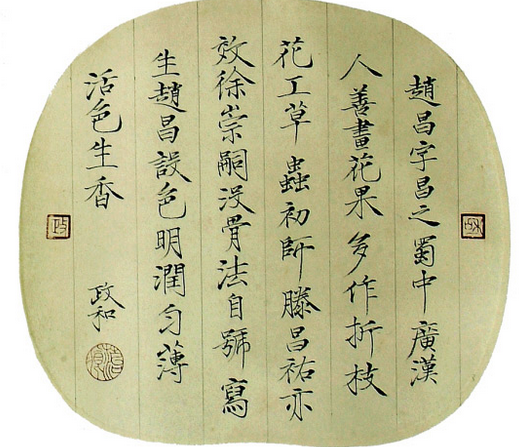 趙昌字昌之蜀中廣漢
人善畫花果多作折枝
花工草蟲初師滕昌祐亦
效徐崇嗣沒骨法自號寫
生趙昌設色明潤勻薄
活色生香
政和